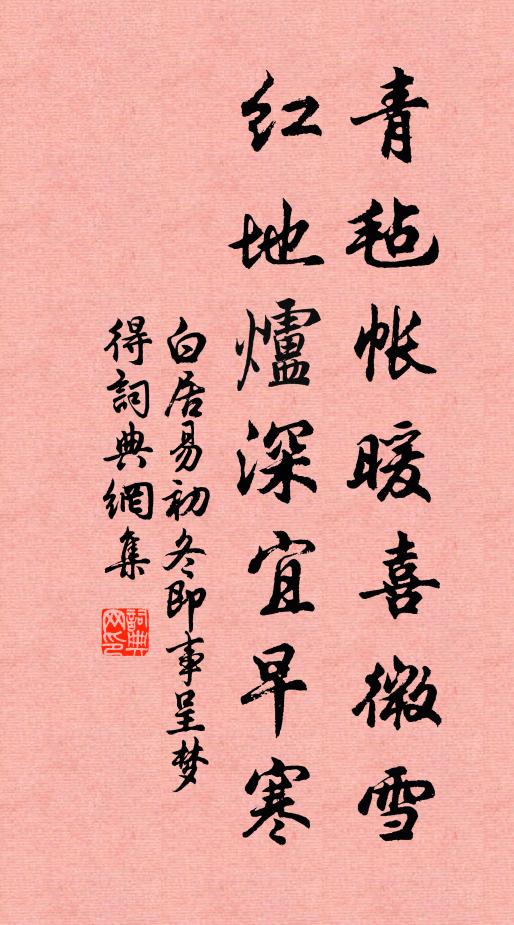 青毡帐暖喜微雪
红地爐深宜早寒
白居易初冬即事呈梦
得詞典網集
詞典
网印